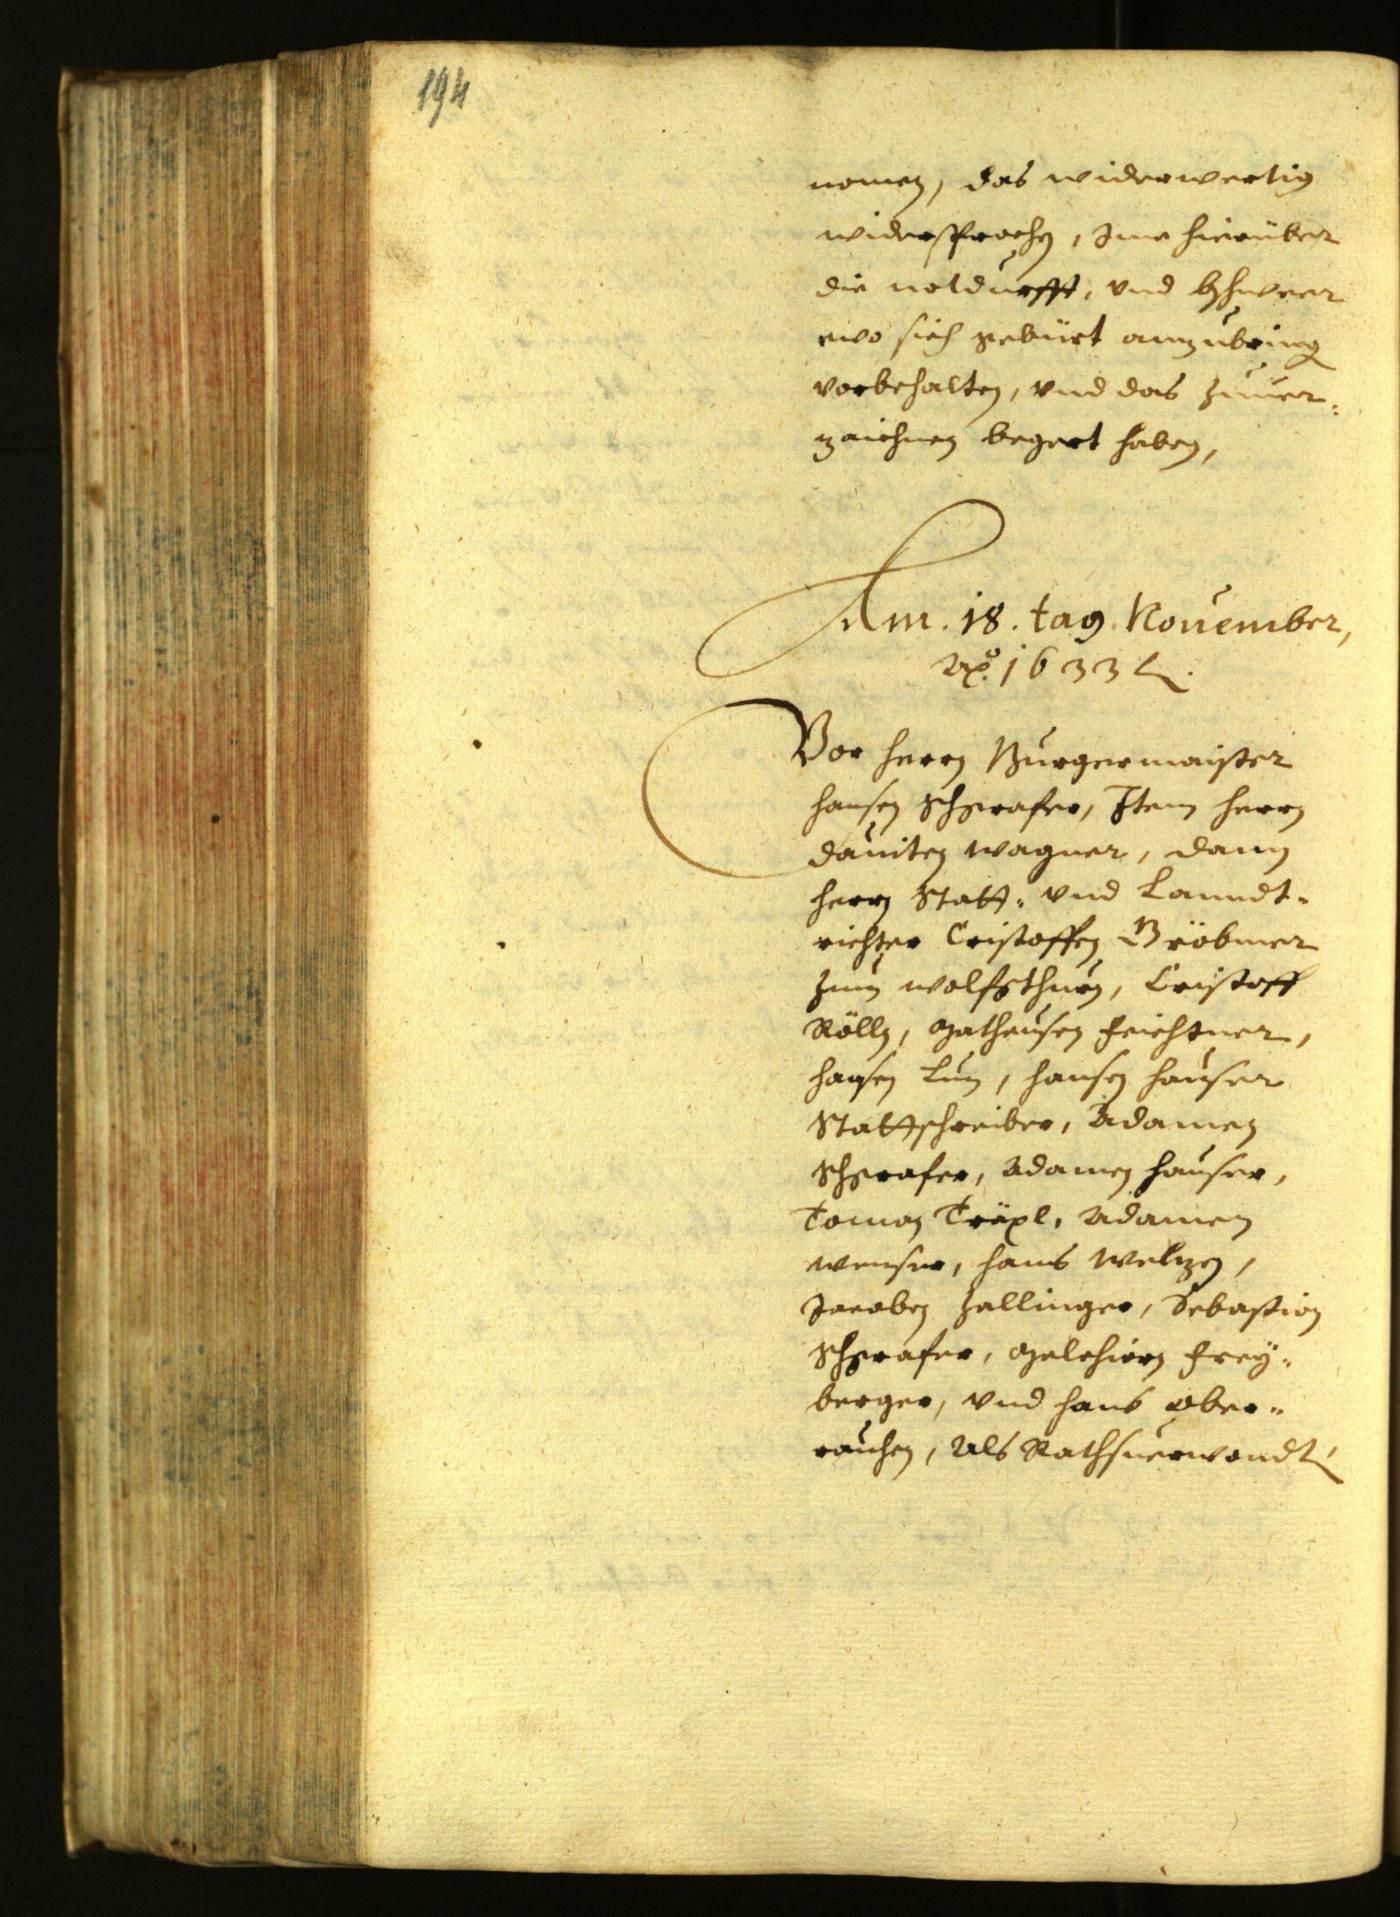 194
nomen, das widerwertig
widersprochen, Ime hierüber
die notdurfft, vnd bschwer
wo sich gebürt anzubringen
vorbehalten, vnd das zuuer-
zaichnen begert haben,
Am .18. tag Nouember,
Ao. 1633
Vor herrn Burgermaister
hansen Schgrafer, Item herrn
dauiten wagner, dann
herrn Statt- vnd Lanndt-
richter Cristoffen Bröbmer
zum wolfsthurn, Cristoff
Rölln, Matheusen Feichtner,
hansen Lun, hansen hauser
Stattschreiber, Adamen
Schgrafer, Adamen hauser,
Toman Träxl, Adamen
wenser, hans Welzen,
Jacoben Zallinger, Sebastian
Schgrafer, Melchiorn Frey-
berger, vnd hans Ober-
rauhen, Als Rathsuerwondt